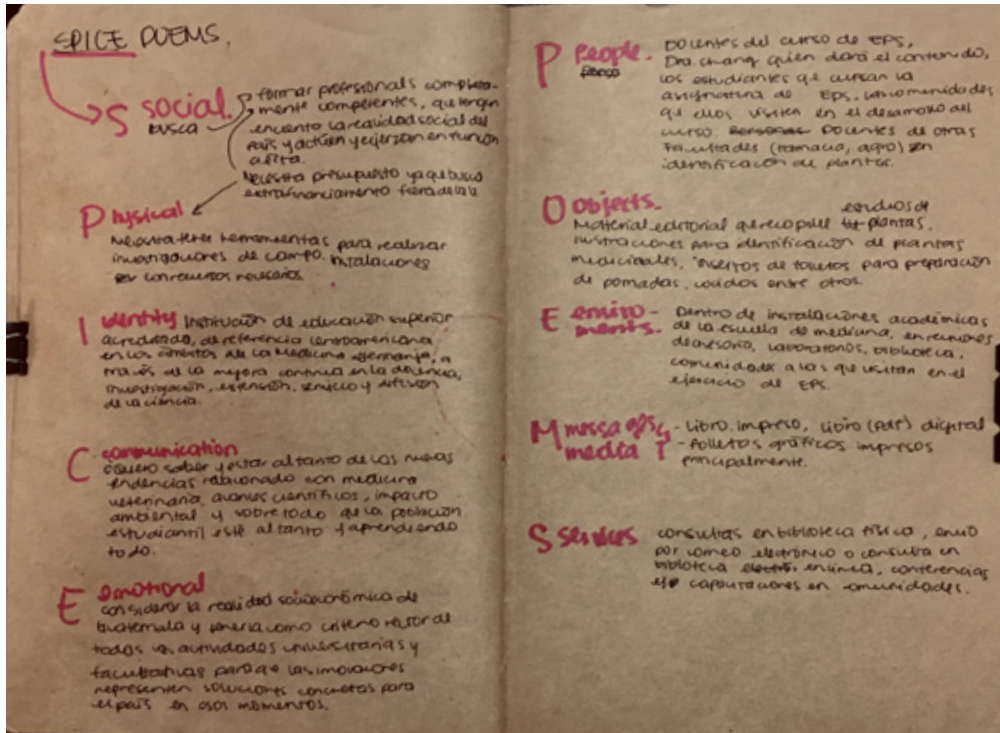 SPICE POEMS.
S social.
busca
formar profesionals completa-
mente competentes, que tengan
encuenta la realidad social del
país y actúen y ejerzan en función
a ésta.
Necesita presupuesto ya que busca
extrafinanciamiento fuera de la
Physical
Necesita tener herramientas para realizar
investigaciones de campo. Instalaciones
con recursos necesarios.
Identity Institución de educación superior
acreditada, de referencia centroamericana
en los ámbitos de la Medicina veterinaria, a
través de la mejora continua en la docencia,
investigación, extensión, servicio y difusión
de la ciencia.
C communication
Quiero saber y estar al tanto de las nuevas
tendencias relacionado con medicina
veterinaria, avances científicos, impacto
ambiental y sobre todo que la población
estudiantil esté al tanto y aprendiendo
todo.
E emotional
considerar la realidad socioeconómica de
Guatemala y tenerla como criterio rector de
todas las actividades universitarias y
facultativas para que las innovaciones
representen soluciones concretas para
el país en esos momentos.
P People. Docentes del curso de EPS,
Dra. Chang quien dará el contenido,
los estudiantes que cursan la
asignatura de EPS, las comunidades
que ellos visiten en el desarrollo del
curso. Docentes de otras
Facultades (farmacia, agro) en
identificación de plantas.
O Objects. estudios de
Material editorial que recopile plantas,
ilustraciones para identificación de plantas
medicinales, insertos de folletos para preparación
de pomadas, cocidos entre otros.
E enviro- Dentro de instalaciones académicas
ments. de la escuela de medicina, en reuniones
de asesoría, laboratorios, biblioteca,
comunidades a las que visitan en el
ejercicio de EPS.
M messages, - Libro impreso, libro (pdf) digital
media - Folletos gráficos impresos
principalmente.
S services consultas en biblioteca física, envío
por correo electrónico o consulta en
biblioteca en línea, conferencias
capacitaciones en comunidades.